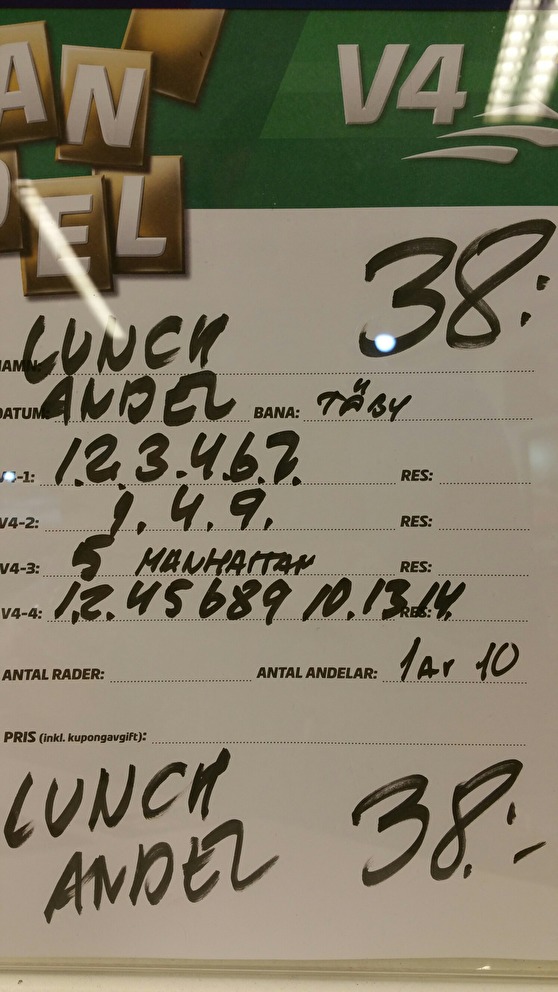 AN V4
EL
38:
NAMN: LUNCH
DATUM: ANDEL BANA: TÄBY
V4-1: 1.2.3.4.6.7. RES:
V4-2: 1.4.9. RES:
V4-3: 5 MANHATTAN RES:
V4-4: 1.2.45689 10.13.14. RES:
ANTAL RADER: ANTAL ANDELAR: 1 AV 10
PRIS (inkl. kupongavgift):
LUNCH
ANDEL 38:-